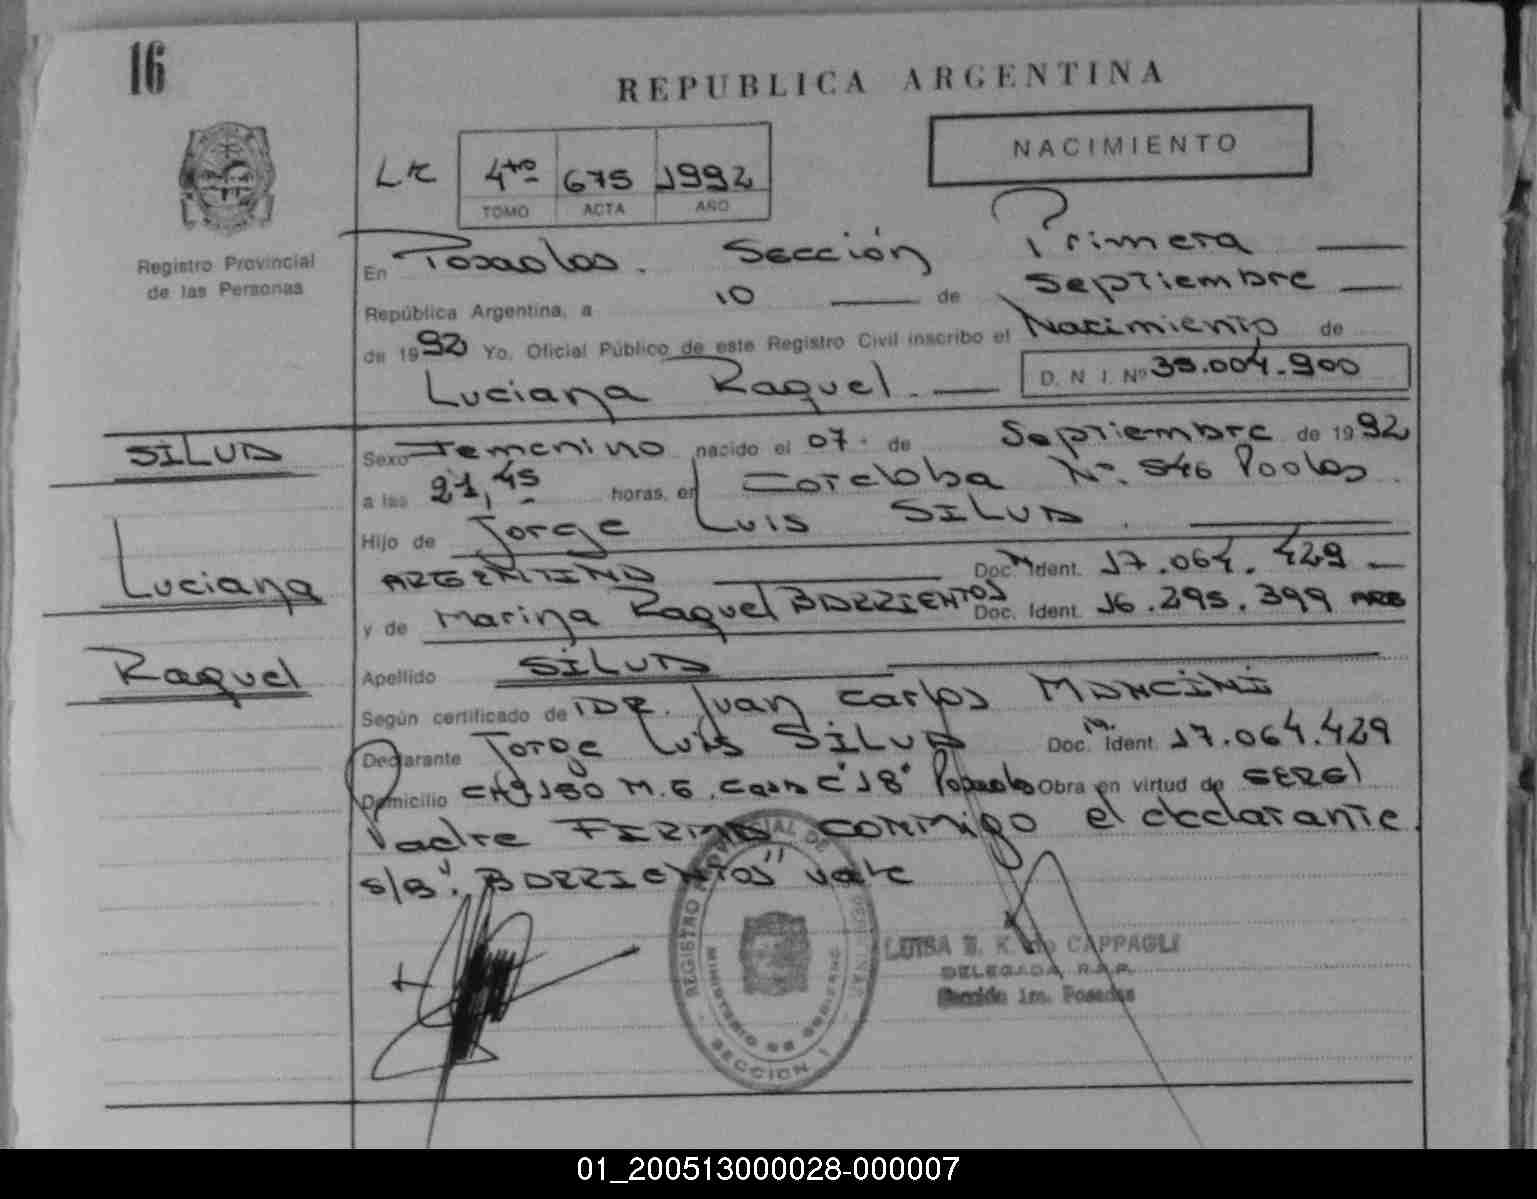 16
REPUBLICA ARGENTINA
NACIMIENTO
4to 675 1992
TOMO ACTA AÑO
Registro Provincial
de las Personas
En Posadas. Sección Primera
República Argentina, a 10 de Septiembre
de 1992 Yo, Oficial Público de este Registro Civil inscribo el Nacimiento de
Luciana Raquel. D. N. I. Nº
SILVA
Luciana
Raquel
Sexo Femenino nacido el 07 de Septiembre de 1992
a las 21,45 horas, en Cordoba Nº. 546 Pdas
Hijo de Jorge Luis SILVA
ARGENTINO Doc. Ident. 17.064.429
y de Marina Raquel BARRIENTOS Doc. Ident. 16.295.399 ARG
Apellido SILVA
Según certificado de DR. Juan Carlos MANCINI
Declarante Jorge Luis SILVA Doc. Ident. 17.064.429
Domicilio CH 180 M. 6. Casa C"18" Posadas Obra en virtud de SER el
Padre FIRMA conmigo el declarante.
s/B: "BARRIENTOS" vale
REGISTRO PROVINCIAL DE LAS PERSONAS
MINISTERIO DE GOBIERNO
SECCION 1
LUISA E. K. de CAPPAGLI
DELEGADA R.P.P.
Sección 1ra. Posadas
01_200513000028-000007